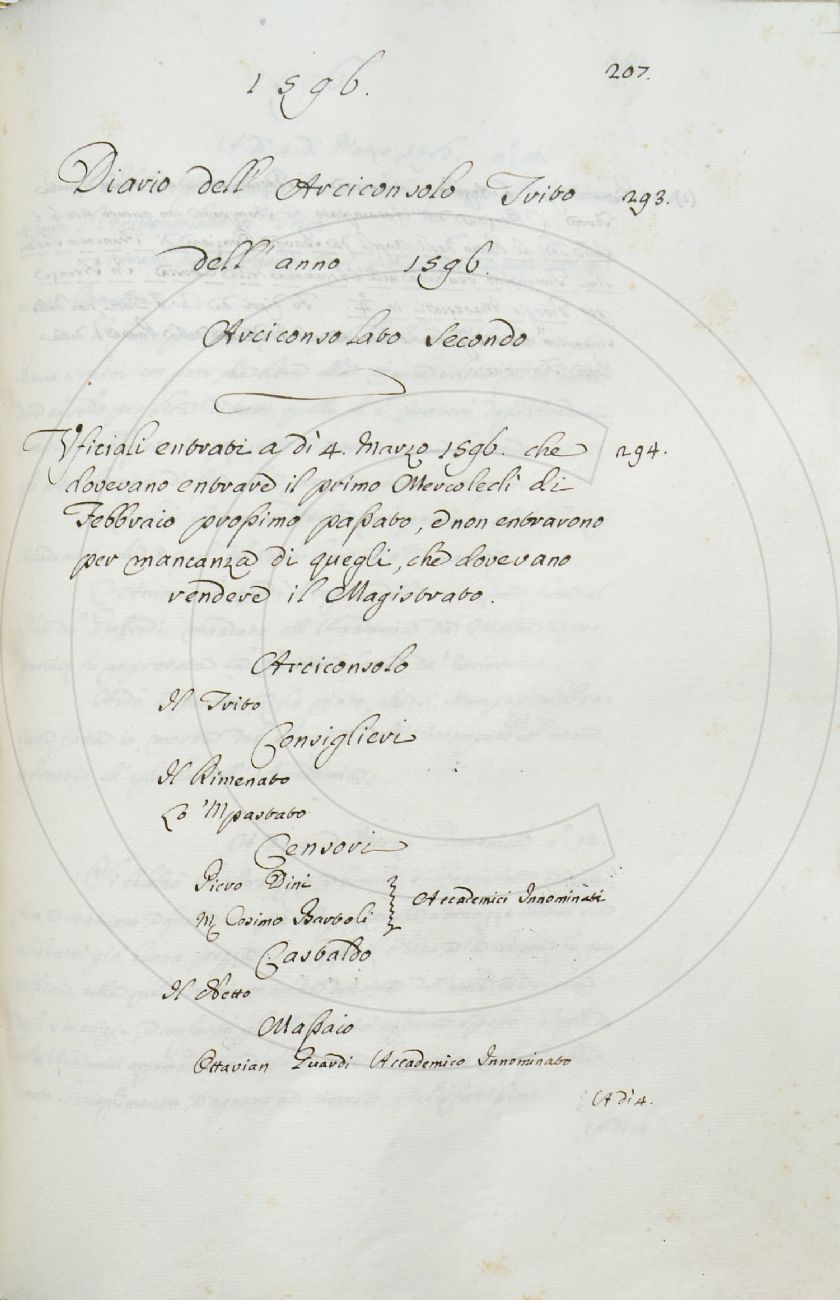 1596.
207.
Diario dell' Arciconsolo Trito 293.
dell' anno 1596.
Arciconsolato Secondo
Vficiali entrati a dì 4. Marzo 1596. che 294.
dovevano entrare il primo Mercoledì di
Febbraio proßimo paßato, e non entrarono
per mancanza di quegli, che dovevano
rendere il Magistrato.
Arciconsolo
Il Trito
Consiglieri
Il Rimenato
Lo 'Mpastato
Censori
Piero Dini
M. Cosimo Bartoli
Accademici Innominati
Castaldo
Il Netto
Maßaio
Ottavian Accademico Innominato
A dì 4.